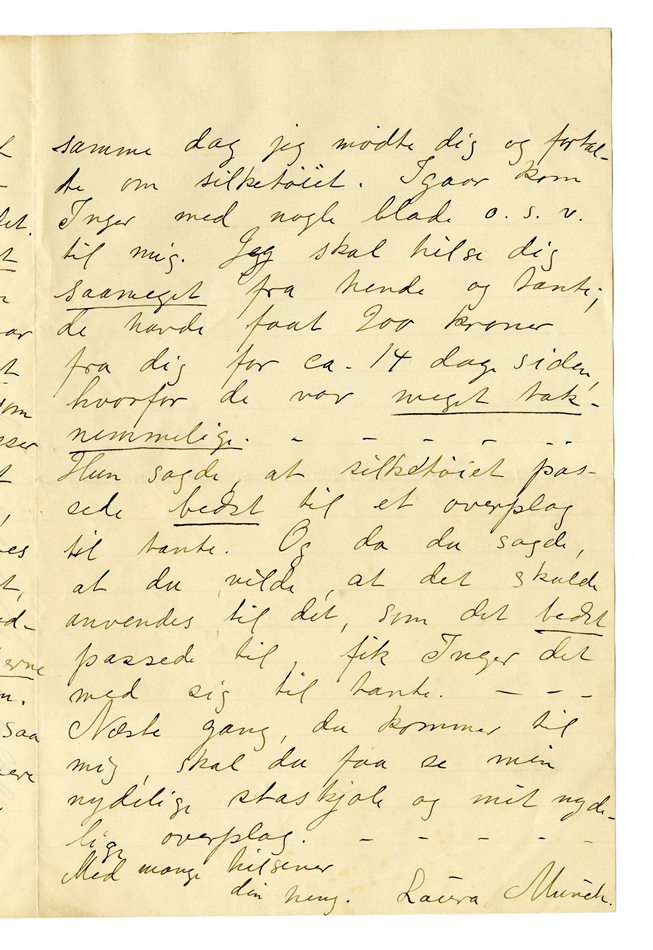 samme dag jeg mødte dig og fortal-
te om silketøiet. Igaar kom
Inger med nogle blade o. s. v.
til mig. Jeg skal hilse dig
saameget fra hende og tante;
de havde faat 200 kroner
fra dig for ca. 14 dage siden,
hvorfor de var meget tak-
nemmelige. – – – – – –
Hun sagde, at silketøiet pas-
sede bedst til et overplag
til tante. Og da du sagde,
at du vilde, at det skulde
anvendes til det, som det bedst
passede til, fik Inger det
med sig til tante. – – –
Næste gang, du kommer til
mig, skal du faa se min
nydelige staskjole og mit nyde-
lige overplag. – – – – –
Med mange hilsener
din heng. Laura Munch.